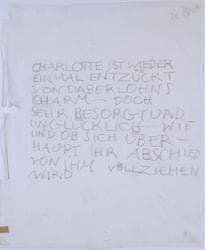 CHARLOTTE IST WIEDER
EINMAL ENTZÜCKT
VON DABERLOHNS
CHARM – DOCH
SEHR BESORGT UND
UNGLÜCKLICH – WIE
UND OB SICH ÜBER-
HAUPT IHR ABSCHIED
VON IHM VOLLZIEHEN
WIRD